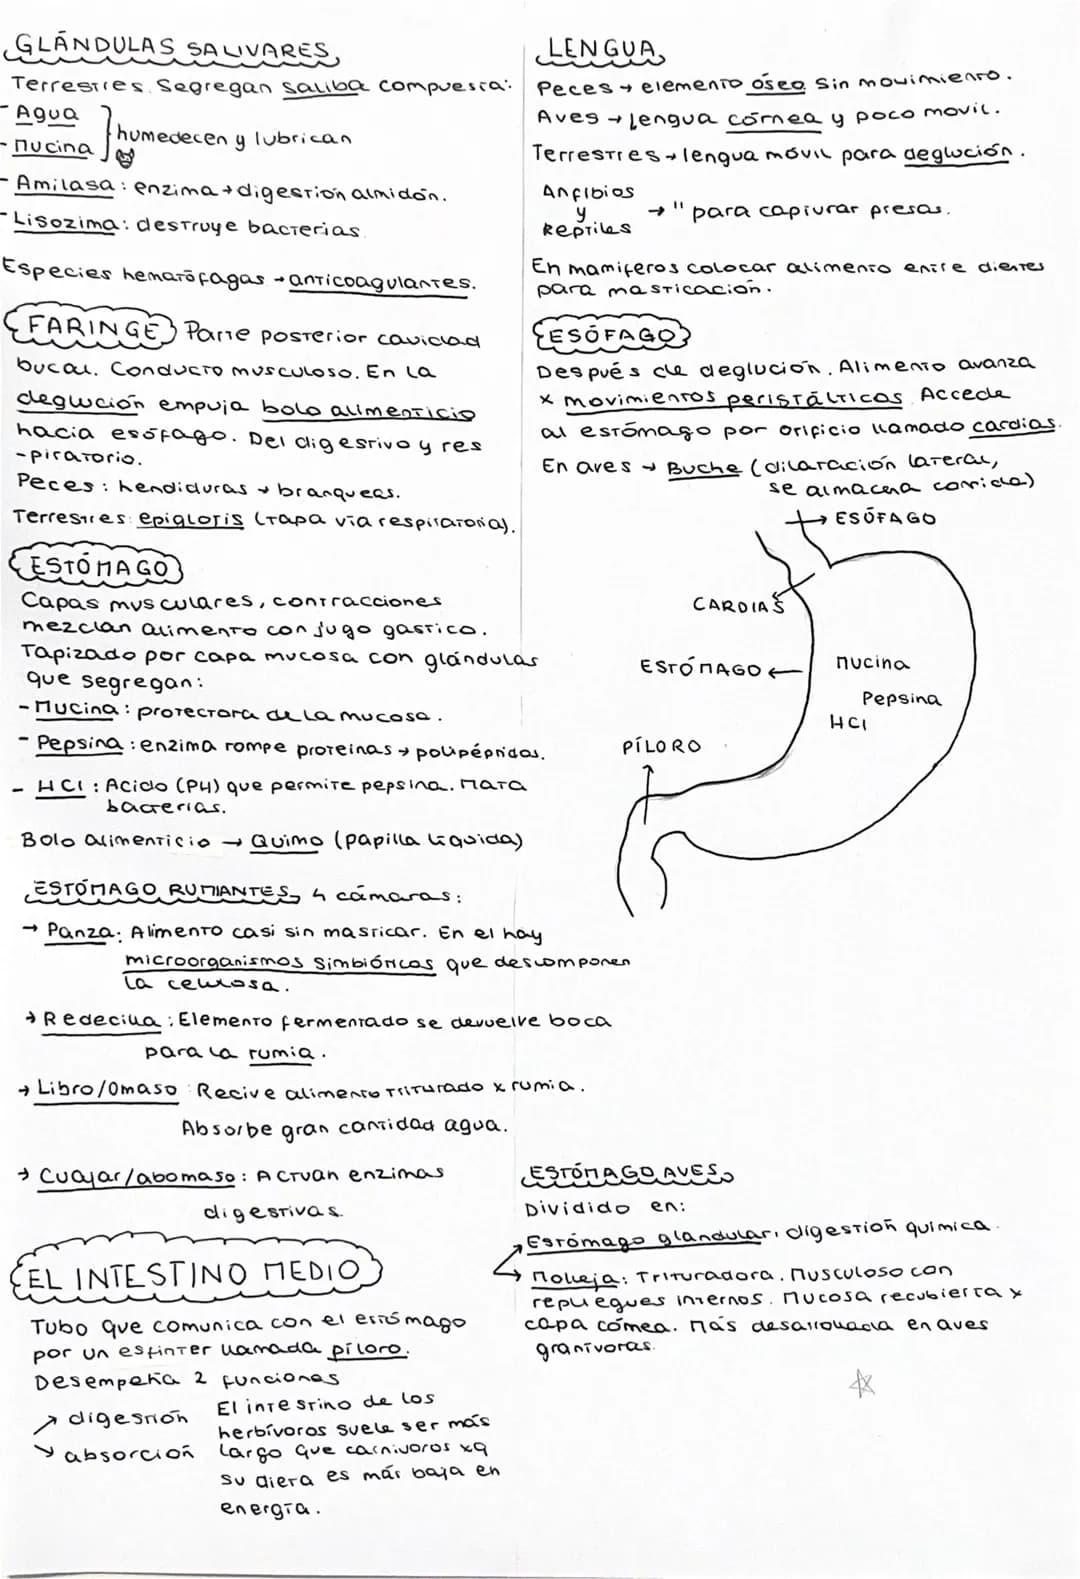 GLÁNDULAS SALIVARES
Terrestres. Segregan saliba compuesta:
- Agua
- Mucina
humedecen y lubrican
- Amilasa: enzima → digestión almidón.
- Lisozima: destruye bacterias
Especies hematófagas → anticoagulantes.
FARINGE Parte posterior cavidad
bucal. Conducto musculoso. En la
deglución empuja bolo alimenticio
hacia esófago. Del digestivo y res
-piratorio.
Peces: hendiduras → branqueas.
Terrestres: epiglotis (tapa vía respiratoria).
ESTÓMAGO
Capas musculares, contracciones
mezclan alimento con jugo gastico.
Tapizado por capa mucosa con glándulas
que segregan:
- Mucina: protectora de la mucosa.
- Pepsina: enzima rompe proteinas → polipéptidos.
- HCl: Acido (PH) que permite pepsina. Mata
bacterias.
Bolo alimenticio → Quimo (papilla líquida)
ESTÓMAGO RUMIANTES, 4 cámaras:
→ Panza: Alimento casi sin masticar. En el hay
microorganismos simbióticos que descomponen
la celulosa.
→ Redecilla: Elemento fermentado se devuelve boca
para la rumia.
→ Libro/Omaso: Recive alimento triturado x rumia.
Absorbe gran cantidad agua.
→ Cuajar/abomaso: Actuan enzimas
digestivas.
EL INTESTINO MEDIO
Tubo que comunica con el estómago
por un esfínter llamada píloro.
Desempeña 2 funciones
→ digestión
→ absorción
El intestino de los
herbívoros suele ser más
largo que carnívoros xq
su dieta es más baja en
energía.
LENGUA
Peces → elemento óseo sin movimiento.
Aves → Lengua córnea y poco movil.
Terrestres → lengua móvil para deglución.
Anfibios
y
Reptiles
→ " para capturar presas.
En mamiferos colocar alimento entre dientes
para masticación.
ESÓFAGO
Después de deglución. Alimento avanza
x movimientos peristálticos. Accede
al estómago por orificio llamado cardias.
En aves → Buche (dilatación lateral,
se almacena comida)
→ ESÓFAGO
CARDIAS
ESTÓMAGO ←
PÍLORO
Mucina
Pepsina
HCl
ESTÓMAGO AVES
Dividido en:
→ Estómago glandular, digestión química.
→ Molleja: Trituradora. Musculoso con
repliegues internos. Mucosa recubierta x
capa córnea. Más desarrollada en aves
granívoras.